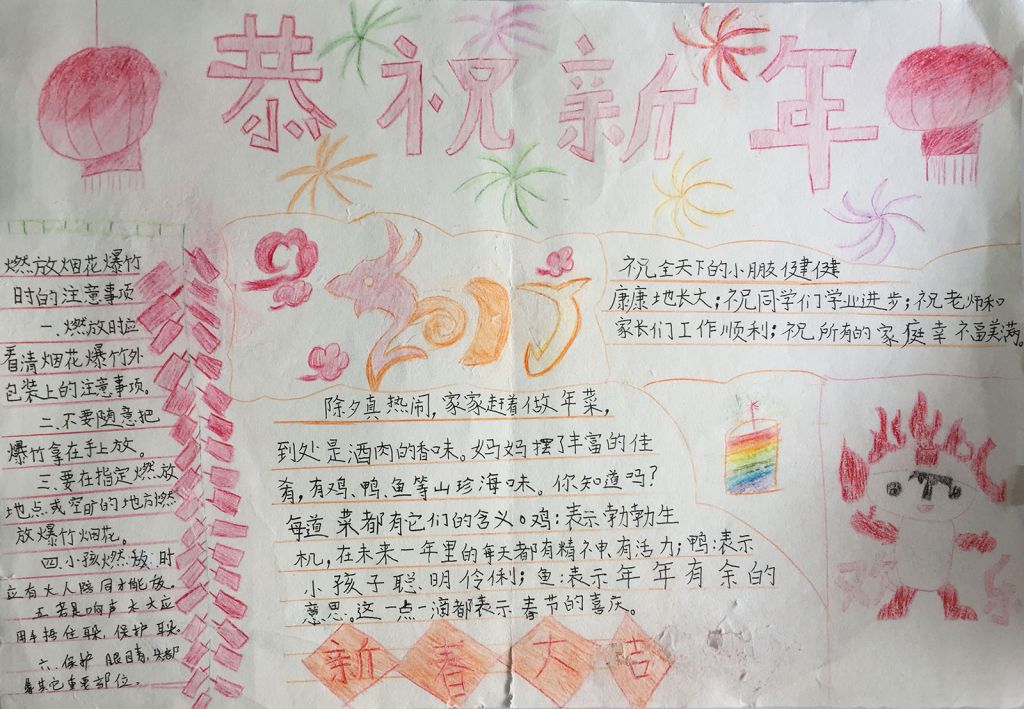 恭祝新年
燃放烟花爆竹
时的注意事项
一.燃放时应
看清烟花爆竹外
包装上的注意事项。
二.不要随意把
爆竹拿在手上放。
三.要在指定燃放
地点或空旷的地方燃
放爆竹烟花。
四.小孩燃放时
应有大人陪同才能放。
五.若是响声太大应
用手捂住耳朵,保护耳朵。
六.保护眼睛,头部
等其它重要部位。
2017
祝全天下的小朋友健健
康康地长大;祝同学们学业进步;祝老师和
家长们工作顺利;祝所有的家庭幸福美满。
除夕真热闹,家家赶着做年菜,
到处是酒肉的香味。妈妈摆了丰富的佳
肴,有鸡、鸭、鱼等山珍海味。你知道吗?
每道菜都有它们的含义。鸡:表示勃勃生
机,在未来一年里的每天都有精神、有活力;鸭:表示
小孩子聪明伶俐;鱼:表示年年有余的
意思。这一点一滴都表示春节的喜庆。
欢乐
新春大吉